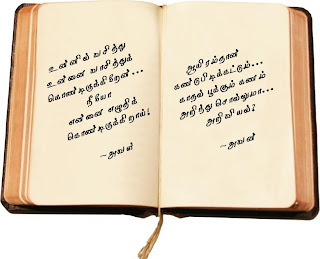 உன்னில் வசித்து
உன்னை வாசித்துக்
கொண்டிருக்கிறேன்...
நீயோ
என்னை எழுதிக்
கொண்டிருக்கிறாய்!
~அவள்
ஆயிரம்தான்
கண்டுபிடிக்கட்டும்...
காதல் பூக்கும் கணம்
அறிந்து சொல்லுமா...
அறிவியல்?
~அவன்